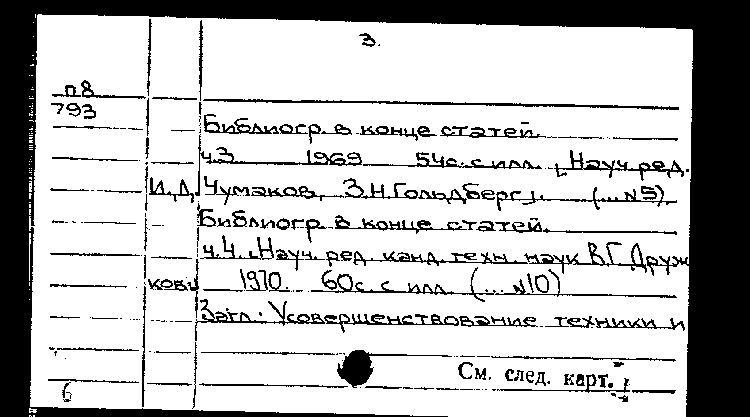 3.
п8
793
Библиогр. в конце статей.
ч.3 1969 54с. с илл. [Науч. ред.
И.Д. Чумаков, З.Н. Гольдберг]. (... №5)
Библиогр. в конце статей.
ч.4. [Науч. ред. канд. техн. наук В.Г. Друж
ков] 1970. 60с. с илл. (... №10)
Загл.: Усовершенствование техники и
См. след. карт.
6